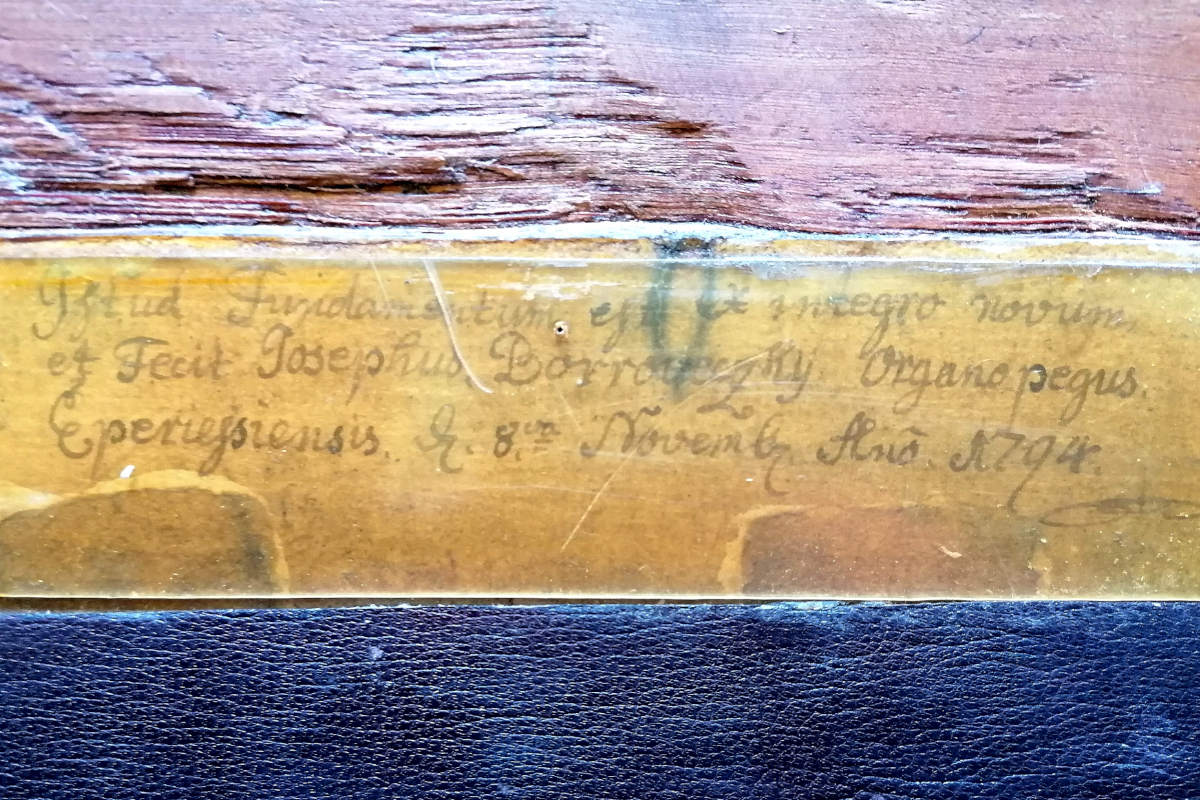 Istud Fundamentum est ex integro novum,
et Fecit Josephus Borroveczky Organopegus.
Eperiessiensis. D. 8.va Novemb. Año. 1794.